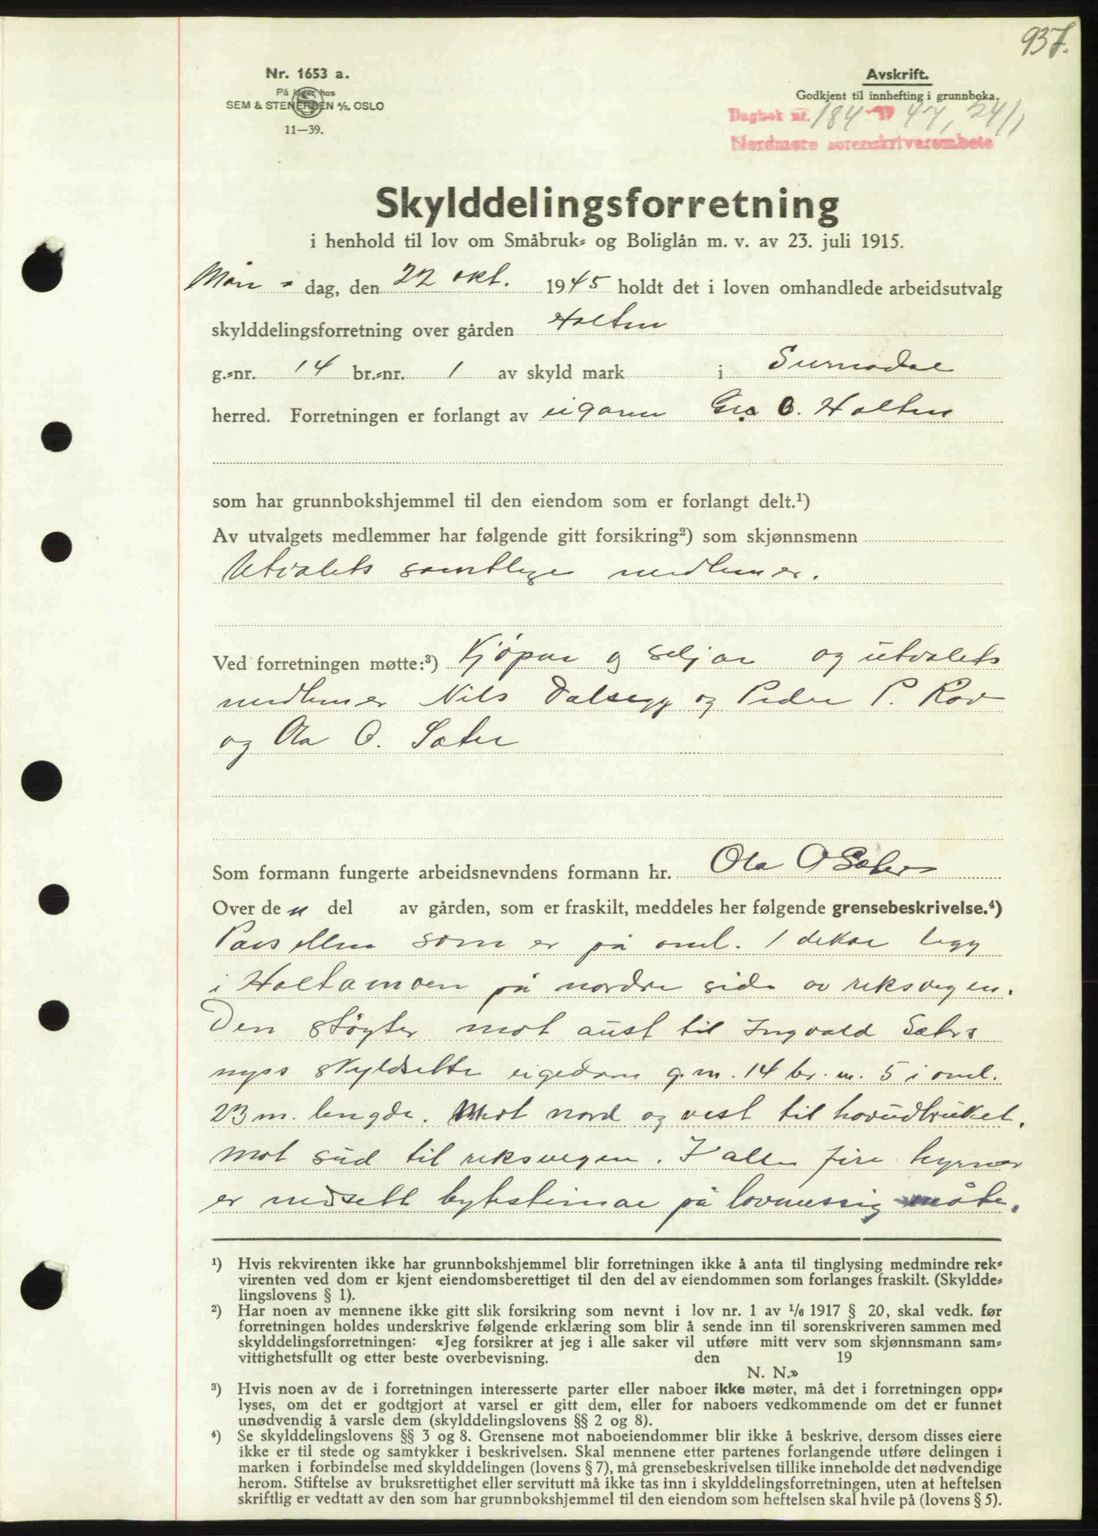 937.
Nr. 1653 a.
På lager hos
SEM & STENERSEN A/S, OSLO
11—39.
Avskrift.
Godkjent til innhefting i grunnboka.
Dagbok nr. 184 - 19 47, 24/1
Nordmøre sorenskriverembete
Skylddelingsforretning
i henhold til lov om Småbruk- og Boliglån m. v. av 23. juli 1915.
Mån - dag, den 22 okt. 1945 holdt det i loven omhandlede arbeidsutvalg
skylddelingsforretning over gården Holten
g.-nr. 14 br.-nr. 1 av skyld mark i Surnadal
herred. Forretningen er forlangt av eigaren O. Holten
som har grunnbokshjemmel til den eiendom som er forlangt delt.¹)
Av utvalgets medlemmer har følgende gitt forsikring²) som skjønnsmenn
Utvalets samtlege medlemer.
Ved forretningen møtte:³) Kjøpar og seljar og utvalets
medlemer Nils Dalsegg og Peder P. Røv
og Ola O. Sæter
Som formann fungerte arbeidsnevndens formann hr. Ola O Sæter
Over de n del av gården, som er fraskilt, meddeles her følgende grensebeskrivelse.⁴)
Parsellen som er på oml. 1 dekar ligg
i Holtamoen på nordre side av riksvegen.
Den støyter mot aust til Ingvald Sæters
nyss skyldsette eigedom g.nr. 14 br. nr. 5 i oml.
23 m. lengde. Mot nord og vest til hovudbruket,
mot sud til riksvegen. I alle fire hyrner
er nedsett bytesteinar på lovmessig måte.
¹) Hvis rekvirenten ikke har grunnbokshjemmel blir forretningen ikke å anta til tinglysing medmindre rek-
virenten ved dom er kjent eiendomsberettiget til den del av eiendommen som forlanges fraskilt. (Skyldde-
lingslovens § 1).
²) Har noen av mennene ikke gitt slik forsikring som nevnt i lov nr. 1 av ¹/₆ 1917 § 20, skal vedk. før
forretningen holdes underskrive følgende erklæring som blir å sende inn til sorenskriveren sammen med
skylddelingsforretningen: «Jeg forsikrer at jeg i alle saker vil utføre mitt verv som skjønnsmann sam-
vittighetsfullt og etter beste overbevisning. den 19
N. N.»
³) Hvis noen av de i forretningen interesserte parter eller naboer ikke møter, må det i forretningen opp-
lyses, om det er godtgjort at varsel er gitt dem, eller for naboers vedkommende om det er funnet
unødvendig å varsle dem (skylddelingslovens §§ 2 og 8).
⁴) Se skylddelingslovens §§ 3 og 8. Grensene mot naboeiendommer blir ikke å beskrive, dersom disses eiere
ikke er til stede og samtykker i beskrivelsen. Skal mennene etter partenes forlangende utføre delingen i
marken i forbindelse med skylddelingen (lovens § 7), må grensebeskrivelsen tillike inneholde det nødvendige
herom. Stiftelse av bruksrettighet eller servitutt må ikke tas inn i skylddelingsforretningen, uten at heftelsen
skriftlig er vedtatt av den som har grunnbokshjemmel til den eiendom som heftelsen skal hvile på (lovens § 5).